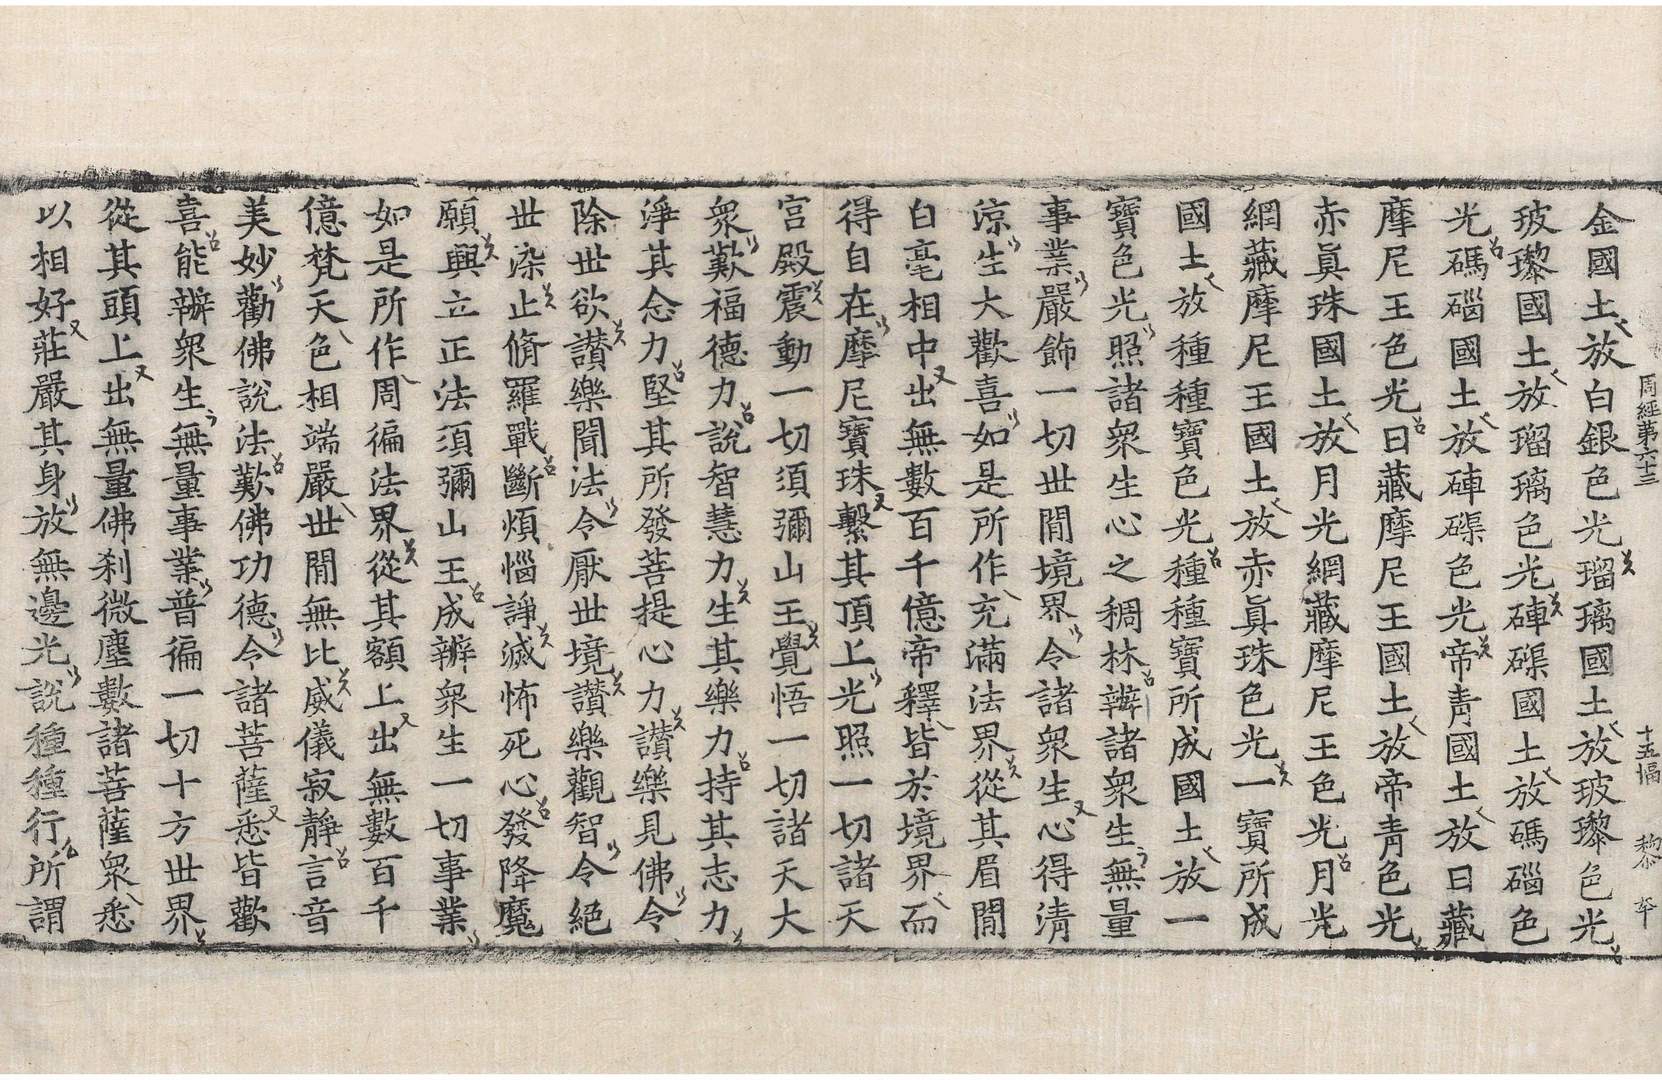 周經第六十三 十五幅 黎
金國土放白銀色光瑠璃國土放玻瓈色光
玻瓈國土放瑠璃色光硨磲國土放碼碯色
光碼碯國土放硨磲色光帝青國土放日藏
摩尼王色光日藏摩尼王國土放帝青色光
赤眞珠國土放月光網藏摩尼王色光月光
網藏摩尼王國土放赤眞珠色光一寶所成
國土放種種寶色光種種寶所成國土放一
寶色光照諸衆生心之稠林辦諸衆生無量
事業嚴飾一切世間境界令諸衆生心得淸
涼生大歡喜如是所作充滿法界從其眉間
白毫相中出無數百千億帝釋皆於境界而
得自在摩尼寶珠繫其頂上光照一切諸天
宮殿震動一切須彌山王覺悟一切諸天大
衆歎福德力說智慧力生其樂力持其志力
淨其念力堅其所發菩提心力讃樂見佛令
除世欲讃樂聞法令厭世境讃樂觀智令絕
世染止脩羅戰斷煩惱諍滅怖死心發降魔
願興立正法須彌山王成辦衆生一切事業
如是所作周徧法界從其額上出無數百千
億梵天色相端嚴世間無比威儀寂靜言音
美妙勸佛說法歎佛功德令諸菩薩悉皆歡
喜能辦衆生無量事業普徧一切十方世界
從其頭上出無量佛刹微塵數諸菩薩衆悉
以相好莊嚴其身放無邊光說種種行所謂